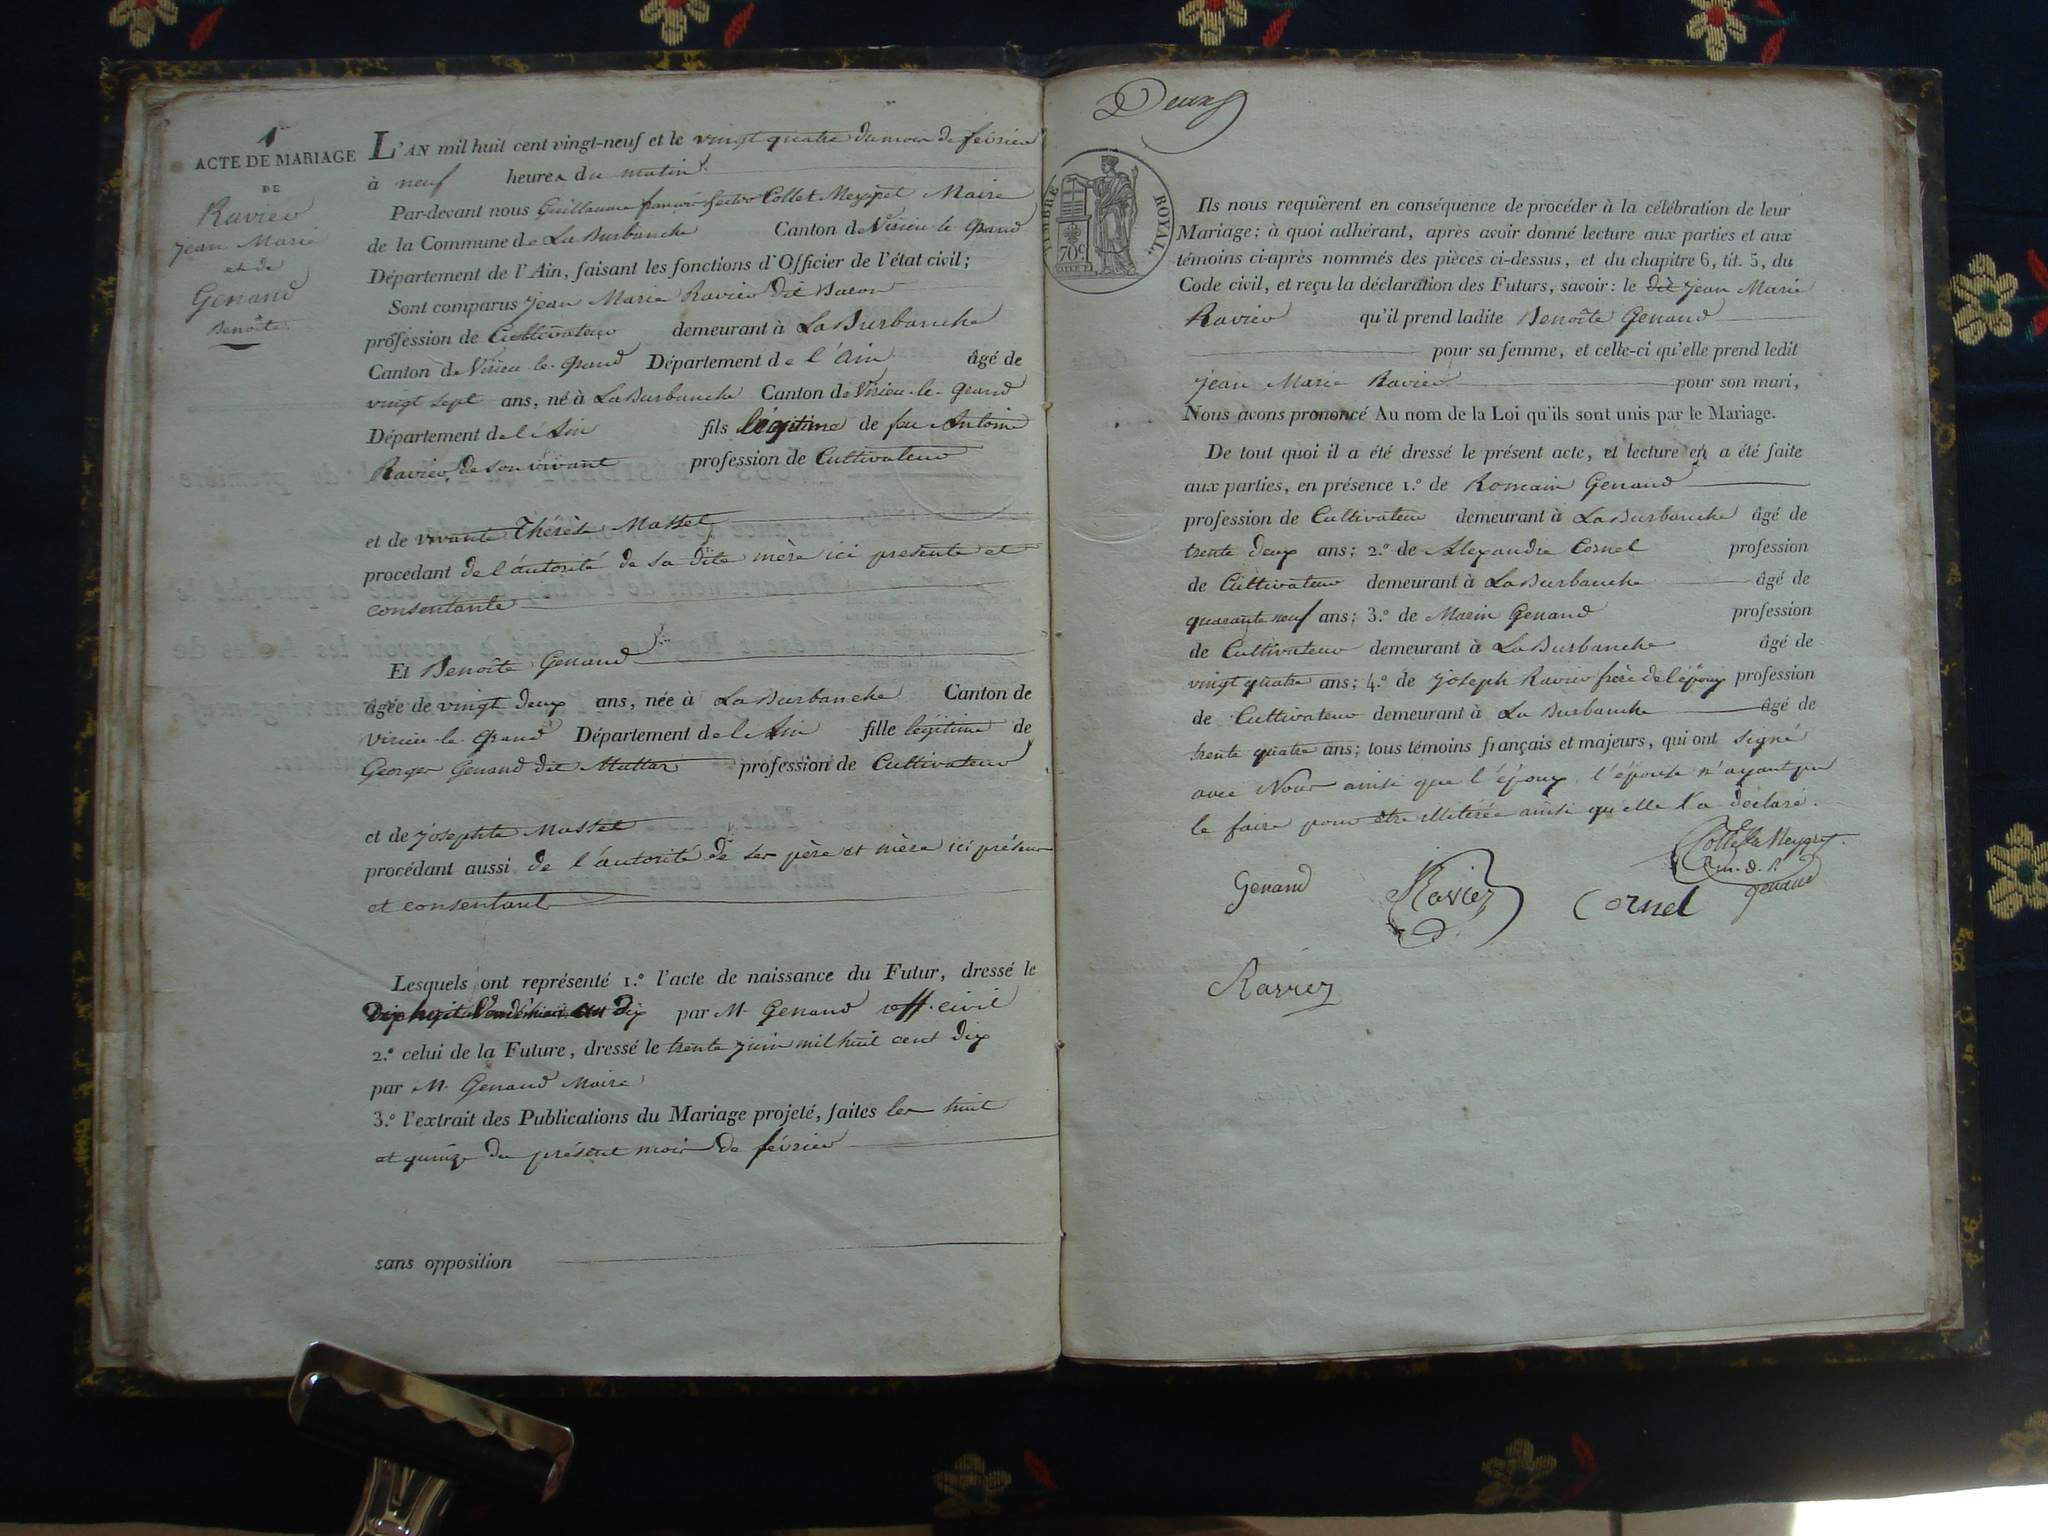 1er
ACTE DE MARIAGE
DE
Ravier
Jean Marie
et de
Genand
Benoîte
L'AN mil huit cent vingt-neuf et le vingt quatre du mois de février
à neuf heures du matin
Par-devant nous Guillaume françois Collet Meygret Maire
de la Commune de La Burbanche Canton de Virieu-le-Grand
Département de l'Ain, faisant les fonctions d'Officier de l'état civil;
Sont comparus Jean Marie Ravier dit
profession de Cultivateur demeurant à La Burbanche
Canton de Virieu-le-Grand Département de l'Ain âgé de
vingt sept ans, né à La Burbanche Canton de Virieu-le-Grand
Département de l'Ain fils légitime de feu Antoine
Ravier de son vivant profession de Cultivateur
et de vivante Thérèse Masset
procédant de l'autorité de sa dite mère ici présente et
consentante
Et Benoîte Genand
âgée de vingt deux ans, née à La Burbanche Canton de
Virieu-le-Grand Département de l'Ain fille légitime de
George Genand dit profession de Cultivateur
et de Josephte Masset
procédant aussi de l'autorité de ses père et mère ici présens
et consentant
Lesquels ont représenté 1.º l'acte de naissance du Futur, dressé le
Dix huit Vendémiaire an Dix par M. Genand off. civil
2.º celui de la Future, dressé le trente juin mil huit cent dix
par M. Genand Maire
3.º l'extrait des Publications du Mariage projeté, faites les huit
et quinze du présent mois de février
sans opposition
Deux
TIMBRE ROYAL
70c
Ils nous requièrent en conséquence de procéder à la célébration de leur
Mariage; à quoi adhérant, après avoir donné lecture aux parties et aux
témoins ci-après nommés des pièces ci-dessus, et du chapitre 6, tit. 5, du
Code civil, et reçu la déclaration des Futurs, savoir: le dit Jean Marie
Ravier qu'il prend ladite Benoîte Genand
pour sa femme, et celle-ci qu'elle prend ledit
Jean Marie Ravier pour son mari,
Nous avons prononcé Au nom de la Loi qu'ils sont unis par le Mariage.
De tout quoi il a été dressé le présent acte, et lecture en a été faite
aux parties, en présence 1.º de Romain Genand
profession de Cultivateur demeurant à La Burbanche âgé de
trente deux ans; 2.º de Alexandre Cornel profession
de Cultivateur demeurant à La Burbanche âgé de
quarante neuf ans; 3.º de Marin Genand profession
de Cultivateur demeurant à La Burbanche âgé de
vingt quatre ans; 4.º de Joseph Ravier frère de l'époux profession
de Cultivateur demeurant à La Burbanche âgé de
trente quatre ans; tous témoins français et majeurs, qui ont signé
avec Nous ainsi que l'époux, l'épouse n'ayant pu
le faire pour être illitérée ainsi qu'elle l'a déclaré.
Collet Meygret
Genand Ravier Cornel genand
Ravier